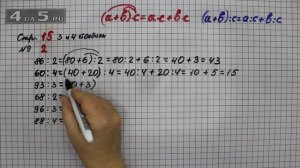 4 a 5 .ru
(a+b)·c=a·c+b·c (a+b):c=a:c+b:c
Стр. 15 3 и 4 столбики
№ 2
86 : 2 = (80+6) : 2 = 80 : 2 + 6 : 2 = 40 + 3 = 43
60 : 4 = (40 + 20) : 4 = 40 : 4 + 20 : 4 = 10 + 5 = 15
93 : 3 = 0 + 3)
68 : 2 =
96 : 3 =
88 : 4 =